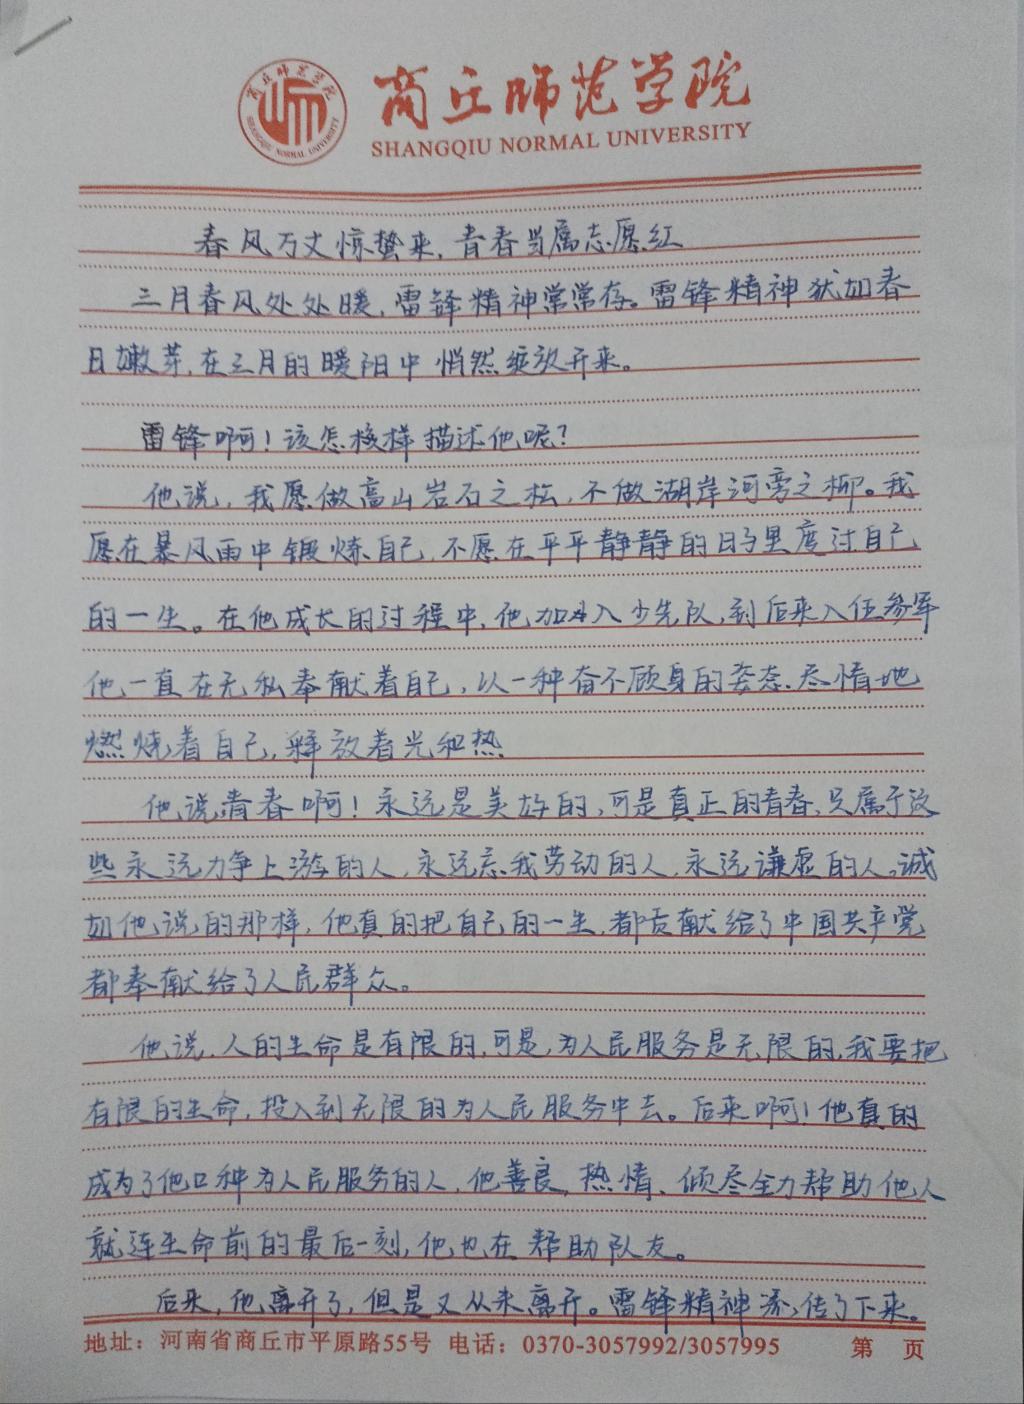 商丘师范学院
SHANGQIU NORMAL UNIVERSITY
商丘师范学院
SHANGQIU NORMAL UNIVERSITY
春风万丈惊蛰来，青春当属志愿红
三月春风处处暖，雷锋精神常常存。雷锋精神犹如春
日嫩芽，在三月的暖阳中悄然绽放开来。
雷锋啊！该怎样描述他呢？
他说，我愿做高山岩石之松，不做湖岸河旁之柳。我
愿在暴风雨中锻炼自己，不愿在平平静静的日子里度过自己
的一生。在他成长的过程中，他加入少先队，到后来入伍参军
他一直在无私奉献着自己，以一种奋不顾身的姿态、尽情地
燃烧着自己，释放着光和热
他说，青春啊！永远是美好的，可是真正的青春，只属于这
些永远力争上游的人，永远忘我劳动的人，永远谦虚的人。诚
如他说的那样，他真的把自己的一生，都贡献给了中国共产党
都奉献给了人民群众。
他说，人的生命是有限的，可是，为人民服务是无限的，我要把
有限的生命，投入到无限的为人民服务中去。后来啊！他真的
成为了他口种为人民服务的人，他善良，热情、倾尽全力帮助他人
就连生命前的最后一刻，他也在帮助队友。
后来，他离开了，但是又从未离开。雷锋精神流传了下来。
地址：河南省商丘市平原路55号 电话：0370-3057992/3057995 第 页